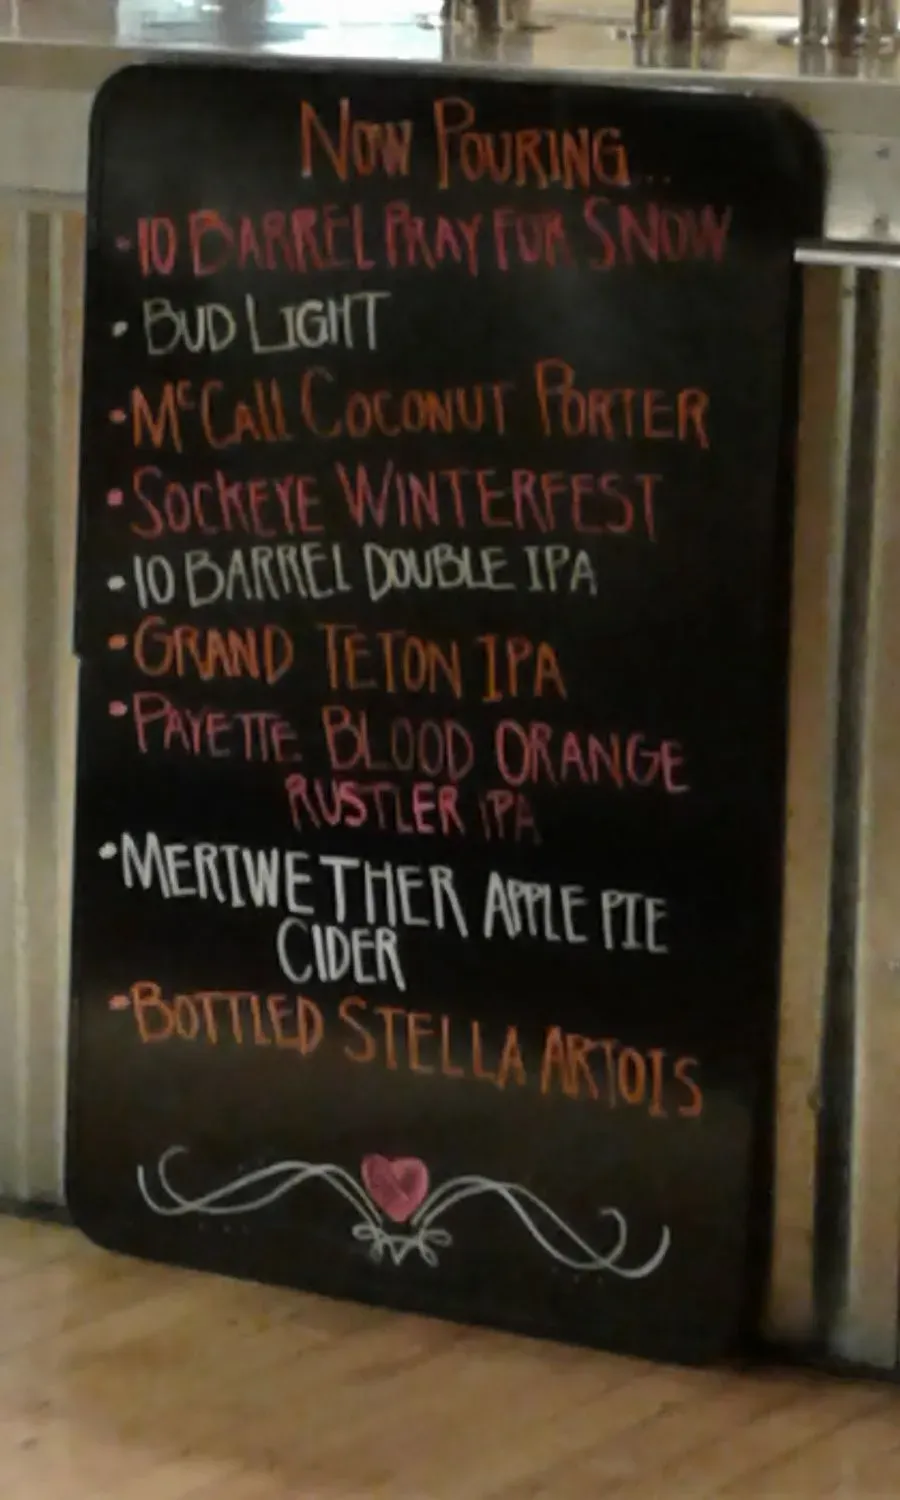 NOW POURING...
• 10 BARREL PRAY FOR SNOW
• BUD LIGHT
• McCALL COCONUT PORTER
• SOCKEYE WINTERFEST
• 10 BARREL DOUBLE IPA
• GRAND TETON IPA
• PAYETTE BLOOD ORANGE
RUSTLER IPA
• MERIWETHER APPLE PIE
CIDER
• BOTTLED STELLA ARTOIS